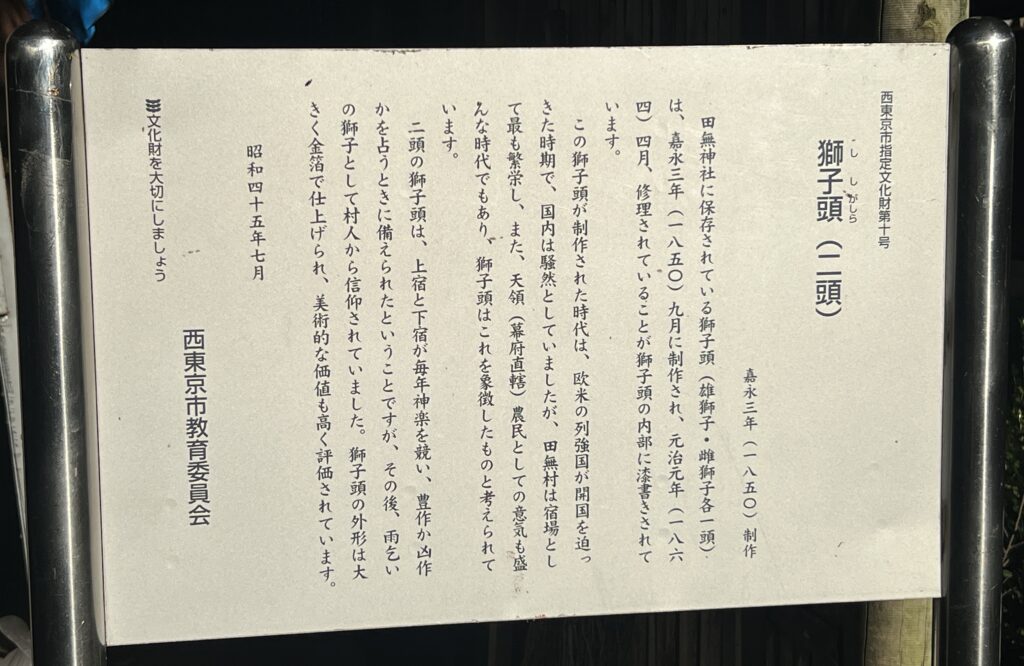 西東京市指定文化財第十号
獅子頭（二頭）
し し がしら
嘉永三年（一八五〇）制作
田無神社に保存されている獅子頭（雄獅子・雌獅子各一頭）
は、嘉永三年（一八五〇）九月に制作され、元治元年（一八六
四）四月、修理されていることが獅子頭の内部に漆書きされて
います。
この獅子頭が制作された時代は、欧米の列強国が開国を迫っ
きた時期で、国内は騒然としていましたが、田無村は宿場とし
て最も繁栄し、また、天領（幕府直轄）農民としての意気も盛
んな時代でもあり、獅子頭はこれを象徴したものと考えられて
います。
二頭の獅子頭は、上宿と下宿が毎年神楽を競い、豊作か凶作
かを占うときに備えられたということですが、その後、雨乞い
の獅子として村人から信仰されていました。獅子頭の外形は大
きく金箔で仕上げられ、美術的な価値も高く評価されています。
昭和四十五年七月
西東京市教育委員会
文化財を大切にしましょう